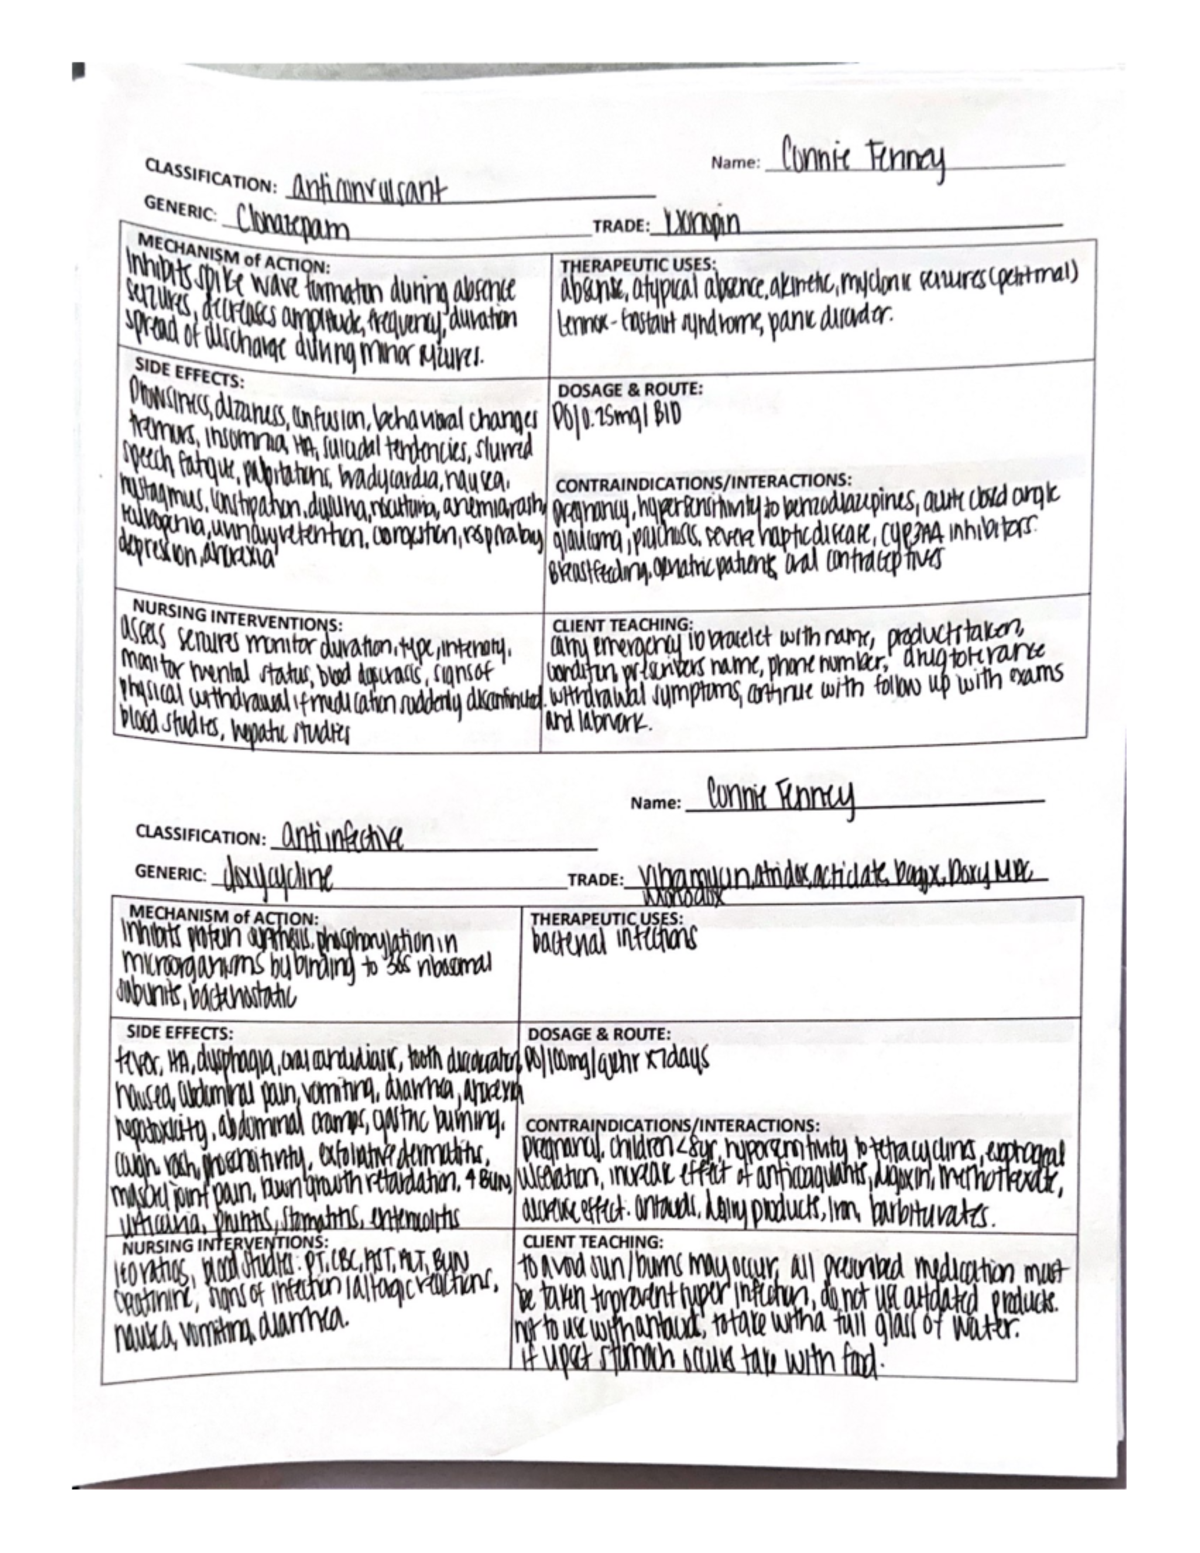 Name: Connie Fenney
CLASSIFICATION: anticonvulsant
GENERIC: Clonazepam TRADE: Klonopin
MECHANISM of ACTION:
Inhibits spike wave formation during absence
seizures, decreases amplitude, frequency, duration
spread of discharge during minor seizures.
THERAPEUTIC USES:
absense, atypical absence, akinetic, myclonic seizures (petit mal)
Lennox-Gastaut syndrome, panic disorder.
SIDE EFFECTS:
Drowsiness, dizziness, confusion, behavioral changes
tremors, insomnia, HA, suicidal tendencies, slurred
speech, fatigue, palpitations, bradycardia, nausea,
nystagmus, constipation, dysuria, nocturia, anemia, rash,
urinary retention, congestion, respiratory
depression, anorexia
DOSAGE & ROUTE:
PO/0.25mg/BID
CONTRAINDICATIONS/INTERACTIONS:
pregnancy, hypersensitivity to benzodiazepines, acute closed angle
glaucoma, psychosis, severe haptic disease, CYP3A4 inhibitors.
Breastfeeding, geriatric patients, oral contraceptives
NURSING INTERVENTIONS:
assess seizures monitor duration, type, intensity.
monitor mental status, blood signs of
physical withdrawal if medication suddenly discontinued.
blood studies, hepatic studies
CLIENT TEACHING:
carry emergency ID bracelet with name, products taken,
condition, prescribers name, phone number, drug tolerance
withdrawal symptoms, continue with follow up with exams
and labwork.
Name: Connie Fenney
CLASSIFICATION: antiinfective
GENERIC: doxycycline TRADE: Vibramycin, atridox, acticlate, Doxy
Monodox
MECHANISM of ACTION:
Inhibits protein synthesis, phosphorylation in
microorganisms by binding to 30S ribosomal
subunits, bacteriostatic
THERAPEUTIC USES:
bacterial infections
SIDE EFFECTS:
fever, HA, dysphagia, oral candidiasis, tooth discoloration,
nausea, abdominal pain, vomiting, diarrhea, anorexia
hepatoxicity, abdominal cramps, gastric burning,
cough, rash, photosensitivity, exfoliative dermatitis,
muscle/joint pain, growth retardation, BUN,
urticaria, pruritis, stomatitis, enterocolitis
DOSAGE & ROUTE:
PO/100mg/ x7days
CONTRAINDICATIONS/INTERACTIONS:
pregnancy, children <8yr, hypersensitivity to tetracyclines, esophageal
ulceration, increase effect of anticoagulants, digoxin, methotrexate,
decrease effect: antacids, dairy products, iron, barbiturates.
NURSING INTERVENTIONS:
I&O ratios, blood studies: PT, CBC, AST, ALT, BUN
creatinine, signs of infection/allergic reactions,
nausea, vomiting, diarrhea.
CLIENT TEACHING:
to avoid sun/burns may occur, all prescribed medication must
be taken to prevent super infection, do not use outdated products.
not to use with antacid, to take with a full glass of water.
if upset stomach occurs take with food.